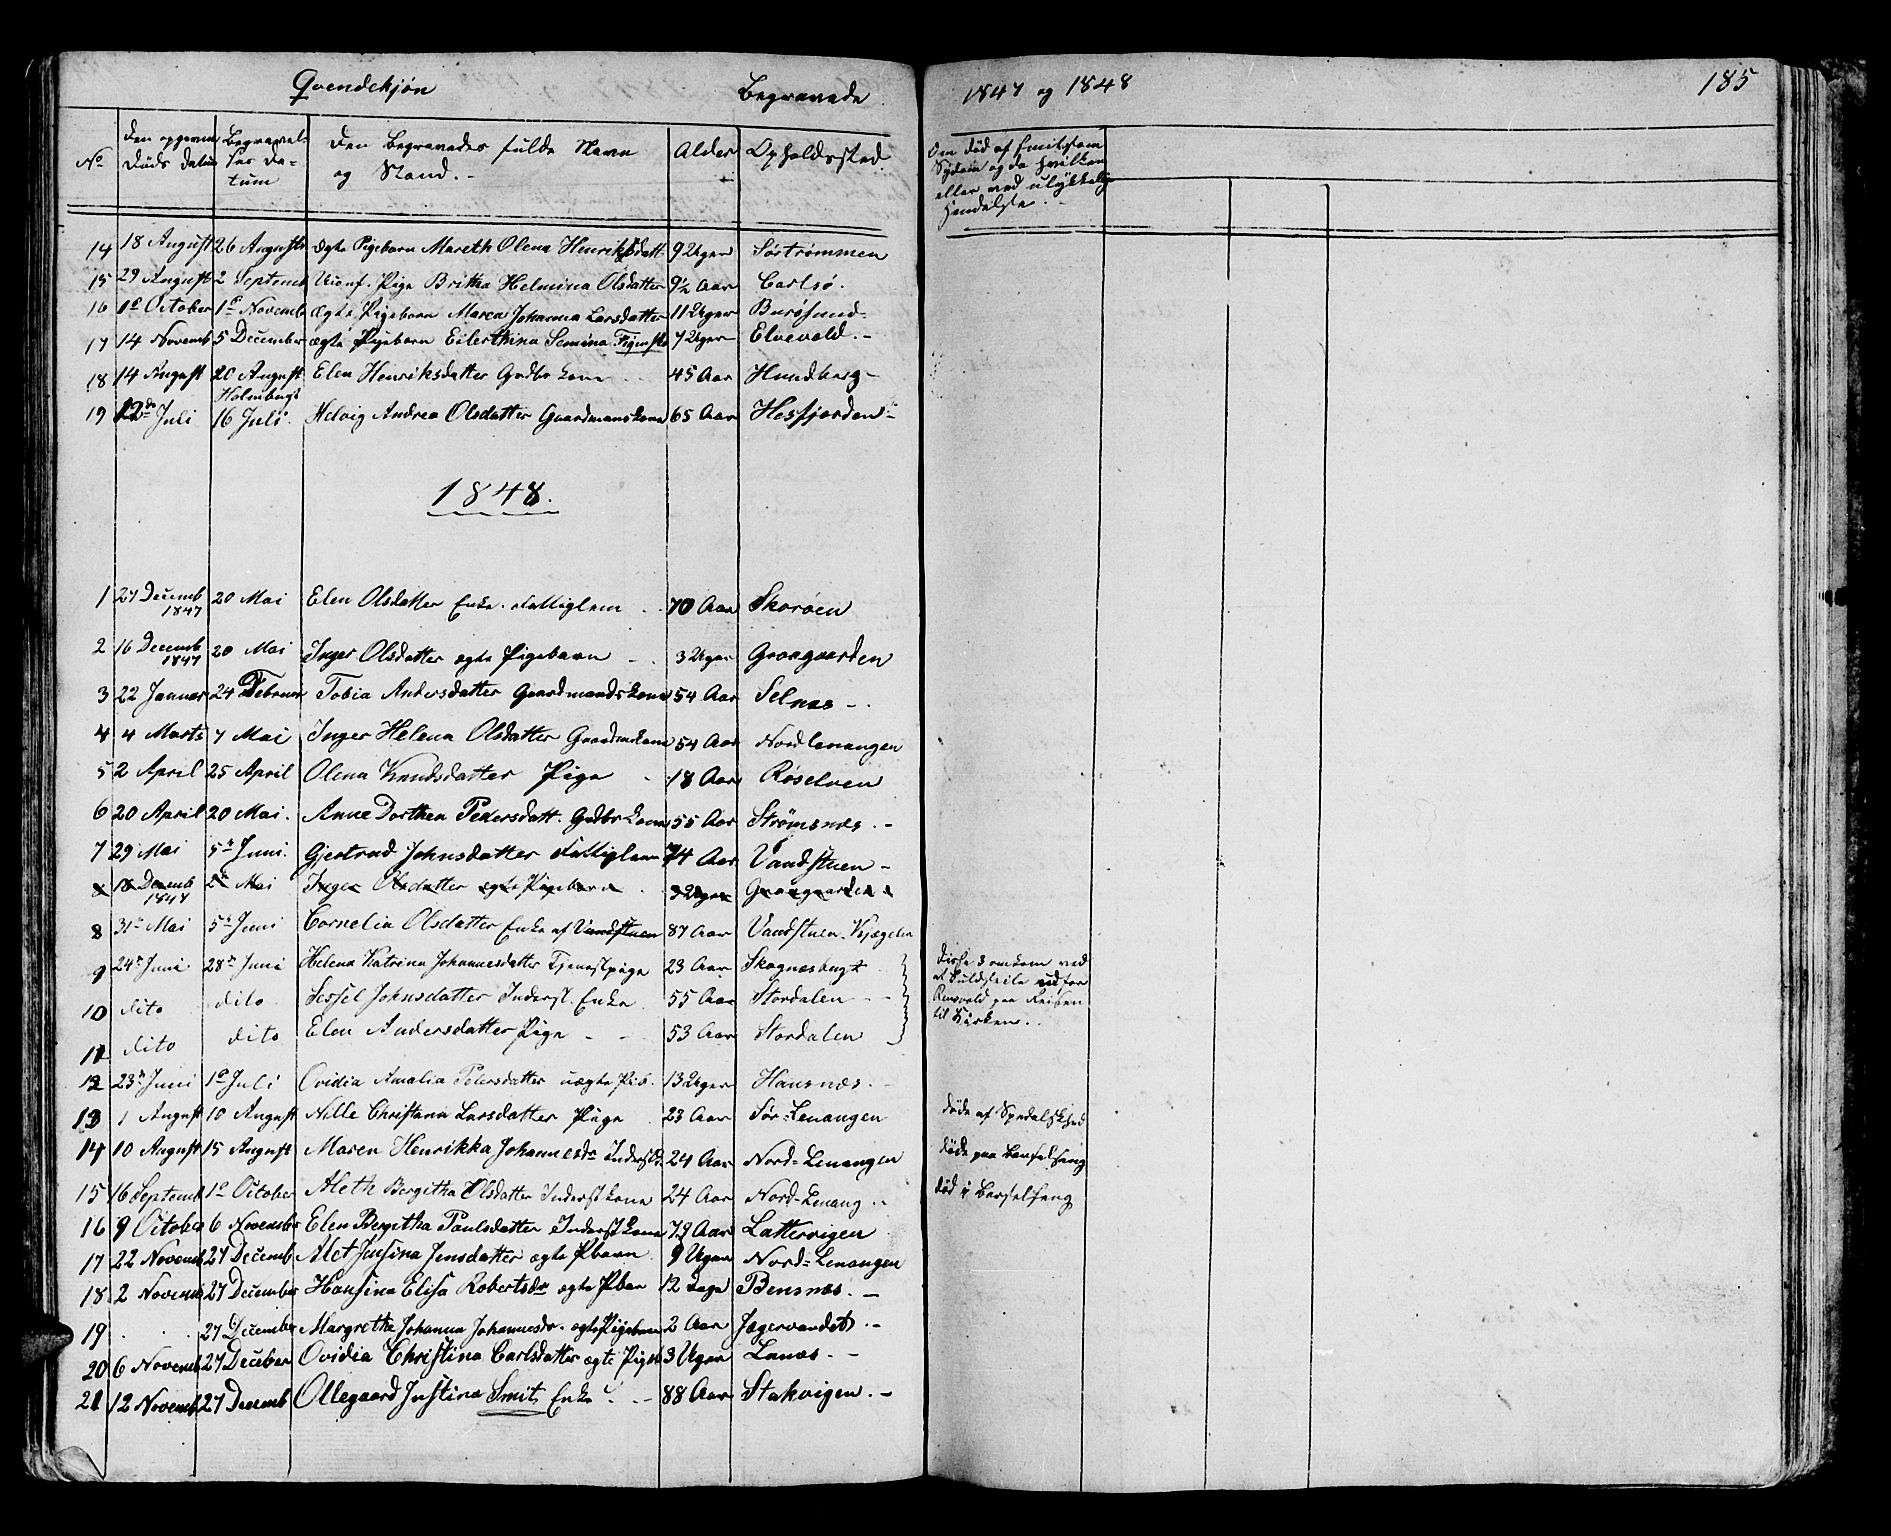 Qvendekjøn Begravede 1847 og 1848 185
No Den opgivne Døds Datum Begravelses Datum Den Begravedes fulde Navn og Stand. Alder Opholdssted Om død af smitsom Sygdom og da hvilken eller ved ulykkelig Hendelse.
14 18 August 26 August ægte Pigebarn Mareth Olena Henriksdatt. 9 Uger Sørstrømmen
15 29 August 2 Septemb Uconf. Pige Britha Helmina Olsdatter 9½ Aar Carlsø.
16 1o October 1o Novemb ægte Pigebarn Maren Johanna Larsdatter 11 Uger Burøsund
17 14 Novemb 5 December ægte Pigebarn Eilerthina Semina 7 Uger Elvevold.
18 14 August 20 August Elen Henriksdatter Gdbr kone 45 Aar Hundberg
Holmbugt
19 12de Juli 16 Juli. Helvig Andrea Olsdatter Gaardmanskone 65 Aar Hesfjorden
1848.
1 27 Decemb 1847 20 Mai Elen Olsdatter Enke. Fattiglem 70 Aar Skorøen
2 16 Decemb 1847 20 Mai Inger Olsdatter ægte Pigebarn 3 Uger Graagaarden
3 22 Januar 24 Februar Tobia Andersdatter Gaardmandskone 54 Aar Selnæs
4 4 Marts 7 Mai Inger Helena Olsdatter Gaardmkone 54 Aar Nordlenangen
5 2 April 25 April Olena Knudsdatter Pige 18 Aar Røselven
6 20 April 20 Mai. Anne Dorthea Pedersdatt. Gdbr kone 55 Aar Strømsnæs.
7 29 Mai 5te Juni. Gjertrud Johnsdatter Fattiglem 74 Aar Vandstuen
8 16 Decemb 1847 2 Mai Inger Olsdatter egte Pigebarn 3 Uger Graagaarden
8 31te Mai 5te Juni Cornelia Olsdatter Enke af Vandstuen 87 Aar Vandstuen Kjægelen
9 24de Juni 28de Juni Helena Katrina Johannesdatter Tjenestpige 23 Aar Skognæsbugt Disse 3 omkom ved
10 dito dito Sessel Johnsdatter Inderst. Enke 55 Aar Stordalen et Kuldseile udfor Rensvold paa Reisen
11 dito dito Elen Andersdatter Pige 53 Aar Stordalen til Kirken.
12 23de Juni 1o Juli Ovidia Amalia Petersdatter uægte Pib. 13 Uger Hansnæs.
13 1 August 10 August Nille Christana Larsdatter Pige 23 Aar Sør-Lenangen døde af Spedalskhed
14 10 August 15 August Maren Henrikka Johannesdr Inderst. 24 Aar Nord-Lenangen døde paa Barselseng
15 16 Septemb 1o October Aleth Bergitha Olsdatter Inderst kone 24 Aar Nord-Lenang. død i Barselseng
16 9 October 6 November Elen Bergitha Paulsdatter Inderst kone 79 Aar Lattervigen
17 22 Novemb 27 Decemb Alet Jensina Jensdatter ægte Pbarn 9 Uger Nord-Lenangen
18 2 Novemb 27 December Hansina Elisa Robertsdr ægte Pbar 12 Dage Bensnæs.
19 . . 27 December Margretha Johanna Johannesdr. ægte Pigebarn 2 Aar Jægervandet
20 6 Novemb 27 Deceber Ovidia Christina Carlsdatter ægte Pigeb 3 Uger Lanæs.
21 12 Novemb 27 Decemb Ollegaard Justina Smit, Enke 88 Aar Stakvigen.